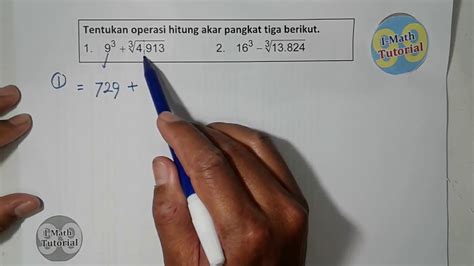 Tentukan operasi hitung akar pangkat tiga berikut.
1. 9³ + ∛4.913 2. 16³ − ∛13.824
① = 729 +
1 Math
Tutorial
1 Math
Tutorial